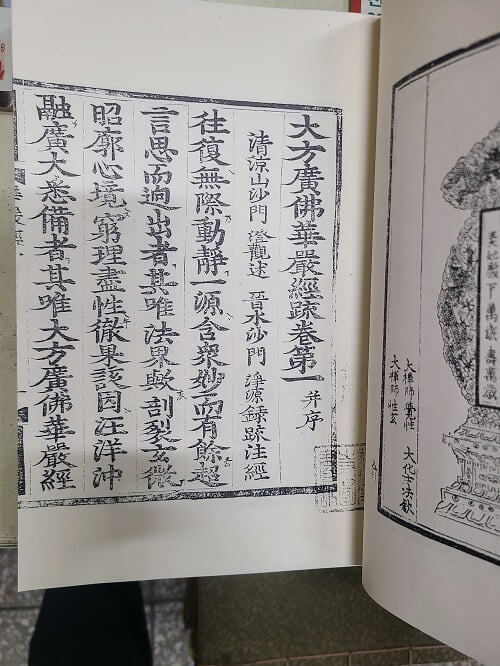 大禪師 覺性 大化士法
大禪師 性玄
大方廣佛華嚴經疏卷第一 并序
清涼山沙門 澄觀述 晉水沙門 淨源錄疏注經
往復無際動靜一源含衆妙而有餘超
言思而逈出者其唯法界歟剖裂玄微
昭廓心境窮理盡性徹果該因汪洋沖
融廣大悉備者其唯大方廣佛華嚴經